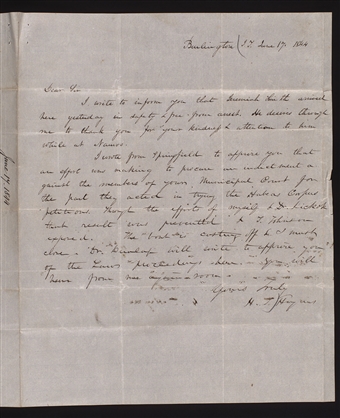 Burlington I.T. June 17, 1844
Dear Sir
I write to inform you that Jeremiah Smith arrived
here yesterday in safety & free from arrest. He desires through
me to thank you for your kindness & attention to him
while at Nauvoo.
I wrote from Springfield to apprise you that
an effort was making to procure an indictment a
gainst the members of your Municipal Court for
the part they acted in trying the Habeas Corpus
petitions. Through the efforts of myself &
that result was prevented & T. Johnson
exposed. The
close. Dr. will write to apprise you
of the Laws proceedings here. will
hear from me
Yours truly
H. T. Hugins
June 17, 1844